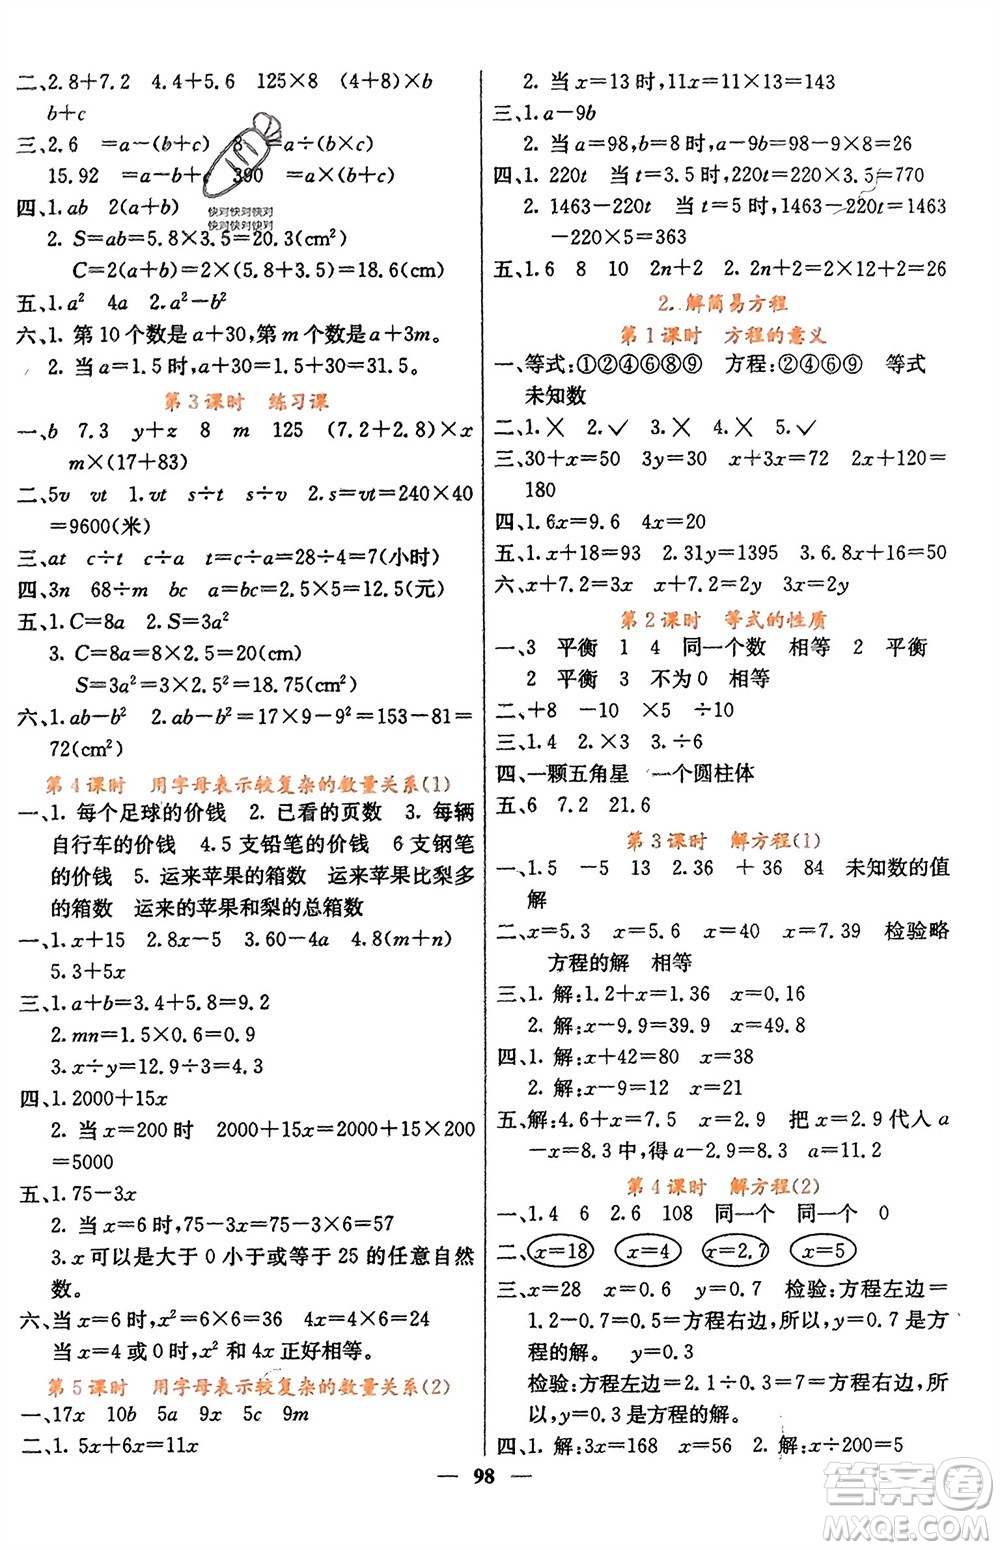 二、2.8+7.2 4.4+5.6 125×8 (4+6)×b
b+c
三、2.6 =a-(b+c) 8 =a÷(b×c)
15.92 =a-b+c 390 =a-(b+c)
四、1.ab 2(a+b)
2. S=ab=5.8×3.5=20.3(cm²)
C=2(a+b)=2×(5.8+3.5)=18.6(cm)
五、1.a² 4a 2.a²-b²
六、1. 第10个数是a+30,第m个数是a+3m。
2. 当a=1.5时,a+30=1.5+30=31.5。
第3课时 练习课
一、b 7.3 y+z 8 m 125 (7.2+2.8)×x
m×(17+83)
二、5v vt 1.vt s÷t s÷v 2.s=vt=240×40
=9600(米)
三、at c÷t c÷a t=c÷a=28÷4=7(小时)
四、3n 68÷m bc a=bc=2.5×5=12.5(元)
五、1.C=8a 2.S=3a²
3. C=8a=8×2.5=20(cm)
S=3a²=3×2.5²=18.75(cm²)
六、1.ab-b² 2.ab-b²=17×9-9²=153-81=
72(cm²)
第4课时 用字母表示较复杂的数量关系(1)
一、1. 每个足球的价钱 2. 已看的页数 3. 每辆
自行车的价钱 4.5支铅笔的价钱 6支钢笔
的价钱 5. 运来苹果的箱数 运来苹果比梨多
的箱数 运来的苹果和梨的总箱数
一、1.x+15 2.8x-5 3.60-4a 4.8(m+n)
5.3+5x
三、1.a+b=3.4+5.8=9.2
2.mn=1.5×0.6=0.9
3.x÷y=12.9÷3=4.3
四、1.2000+15x
2. 当x=200时 2000+15x=2000+15×200
=5000
五、1.75-3x
2. 当x=6时,75-3x=75-3×6=57
3.x可以是大于0小于或等于25的任意自然
数。
六、当x=6时,x²=6×6=36 4x=4×6=24
当x=4或0时,x²和4x正好相等。
第5课时 用字母表示较复杂的数量关系(2)
一、17x 10b 5a 9x 5c 9m
二、1.5x+6x=11x
2. 当x=13时,11x=11×13=143
三、1.a-9b
2. 当a=98,b=8时,a-9b=98-9×8=26
四、1.220t 当t=3.5时,220t=220×3.5=770
2.1463-220t 当t=5时,1463-220t=1463
-220×5=363
五、1.6 8 10 2n+2 2.2n+2=2×12+2=26
2.解简易方程
第1课时 方程的意义
一、等式:①②④⑥⑧⑨ 方程:②④⑥⑨ 等式
未知数
二、1.× 2.✓ 3.× 4.× 5.✓
三、30+x=50 3y=30 x+3x=72 2x+120=
180
四、1.6x=9.6 4x=20
五、1.x+18=93 2.31y=1395 3.6.8x+16=50
六、x+7.2=3x y+7.2=2y 3x=2y
第2课时 等式的性质
一、3 平衡 1 4 同一个数 相等 2 平衡
2 平衡 3 不为0 相等
二、+8 -10 ×5 ÷10
三、1.4 2.×3 3.÷6
四、一颗五角星 一个圆柱体
五、6 7.2 21.6
第3课时 解方程(1)
一、1.5 -5 13 2.36 + 36 84 未知数的值
解
二、x=5.3 x=5.6 x=40 x=7.39 检验略
方程的解 相等
三、1. 解:1.2+x=1.36 x=0.16
2. 解:x-9.9=39.9 x=49.8
四、1. 解:x+42=80 x=38
2. 解:x-9=12 x=21
五、解:4.6+x=7.5 x=2.9 把x=2.9代入a
-x=8.3中,得a-2.9=8.3 a=11.2
第4课时 解方程(2)
一、1.4 6 2.6 108 同一个 同一个 0
二、x=18 x=4 x=2.7 x=5
三、x=28 x=0.6 y=0.7 检验:方程左边=
1.2-0.7=0.5=方程右边,所以,y=0.7是方程
的解。 y=0.3
检验:方程左边=2.1÷0.3=7=方程右边,所
以,y=0.3是方程的解。
四、1. 解:3x=168 x=56 2. 解:x÷200=5
快对快对快对
快对快对快对
— 98 —
答案圈
MXQE.COM